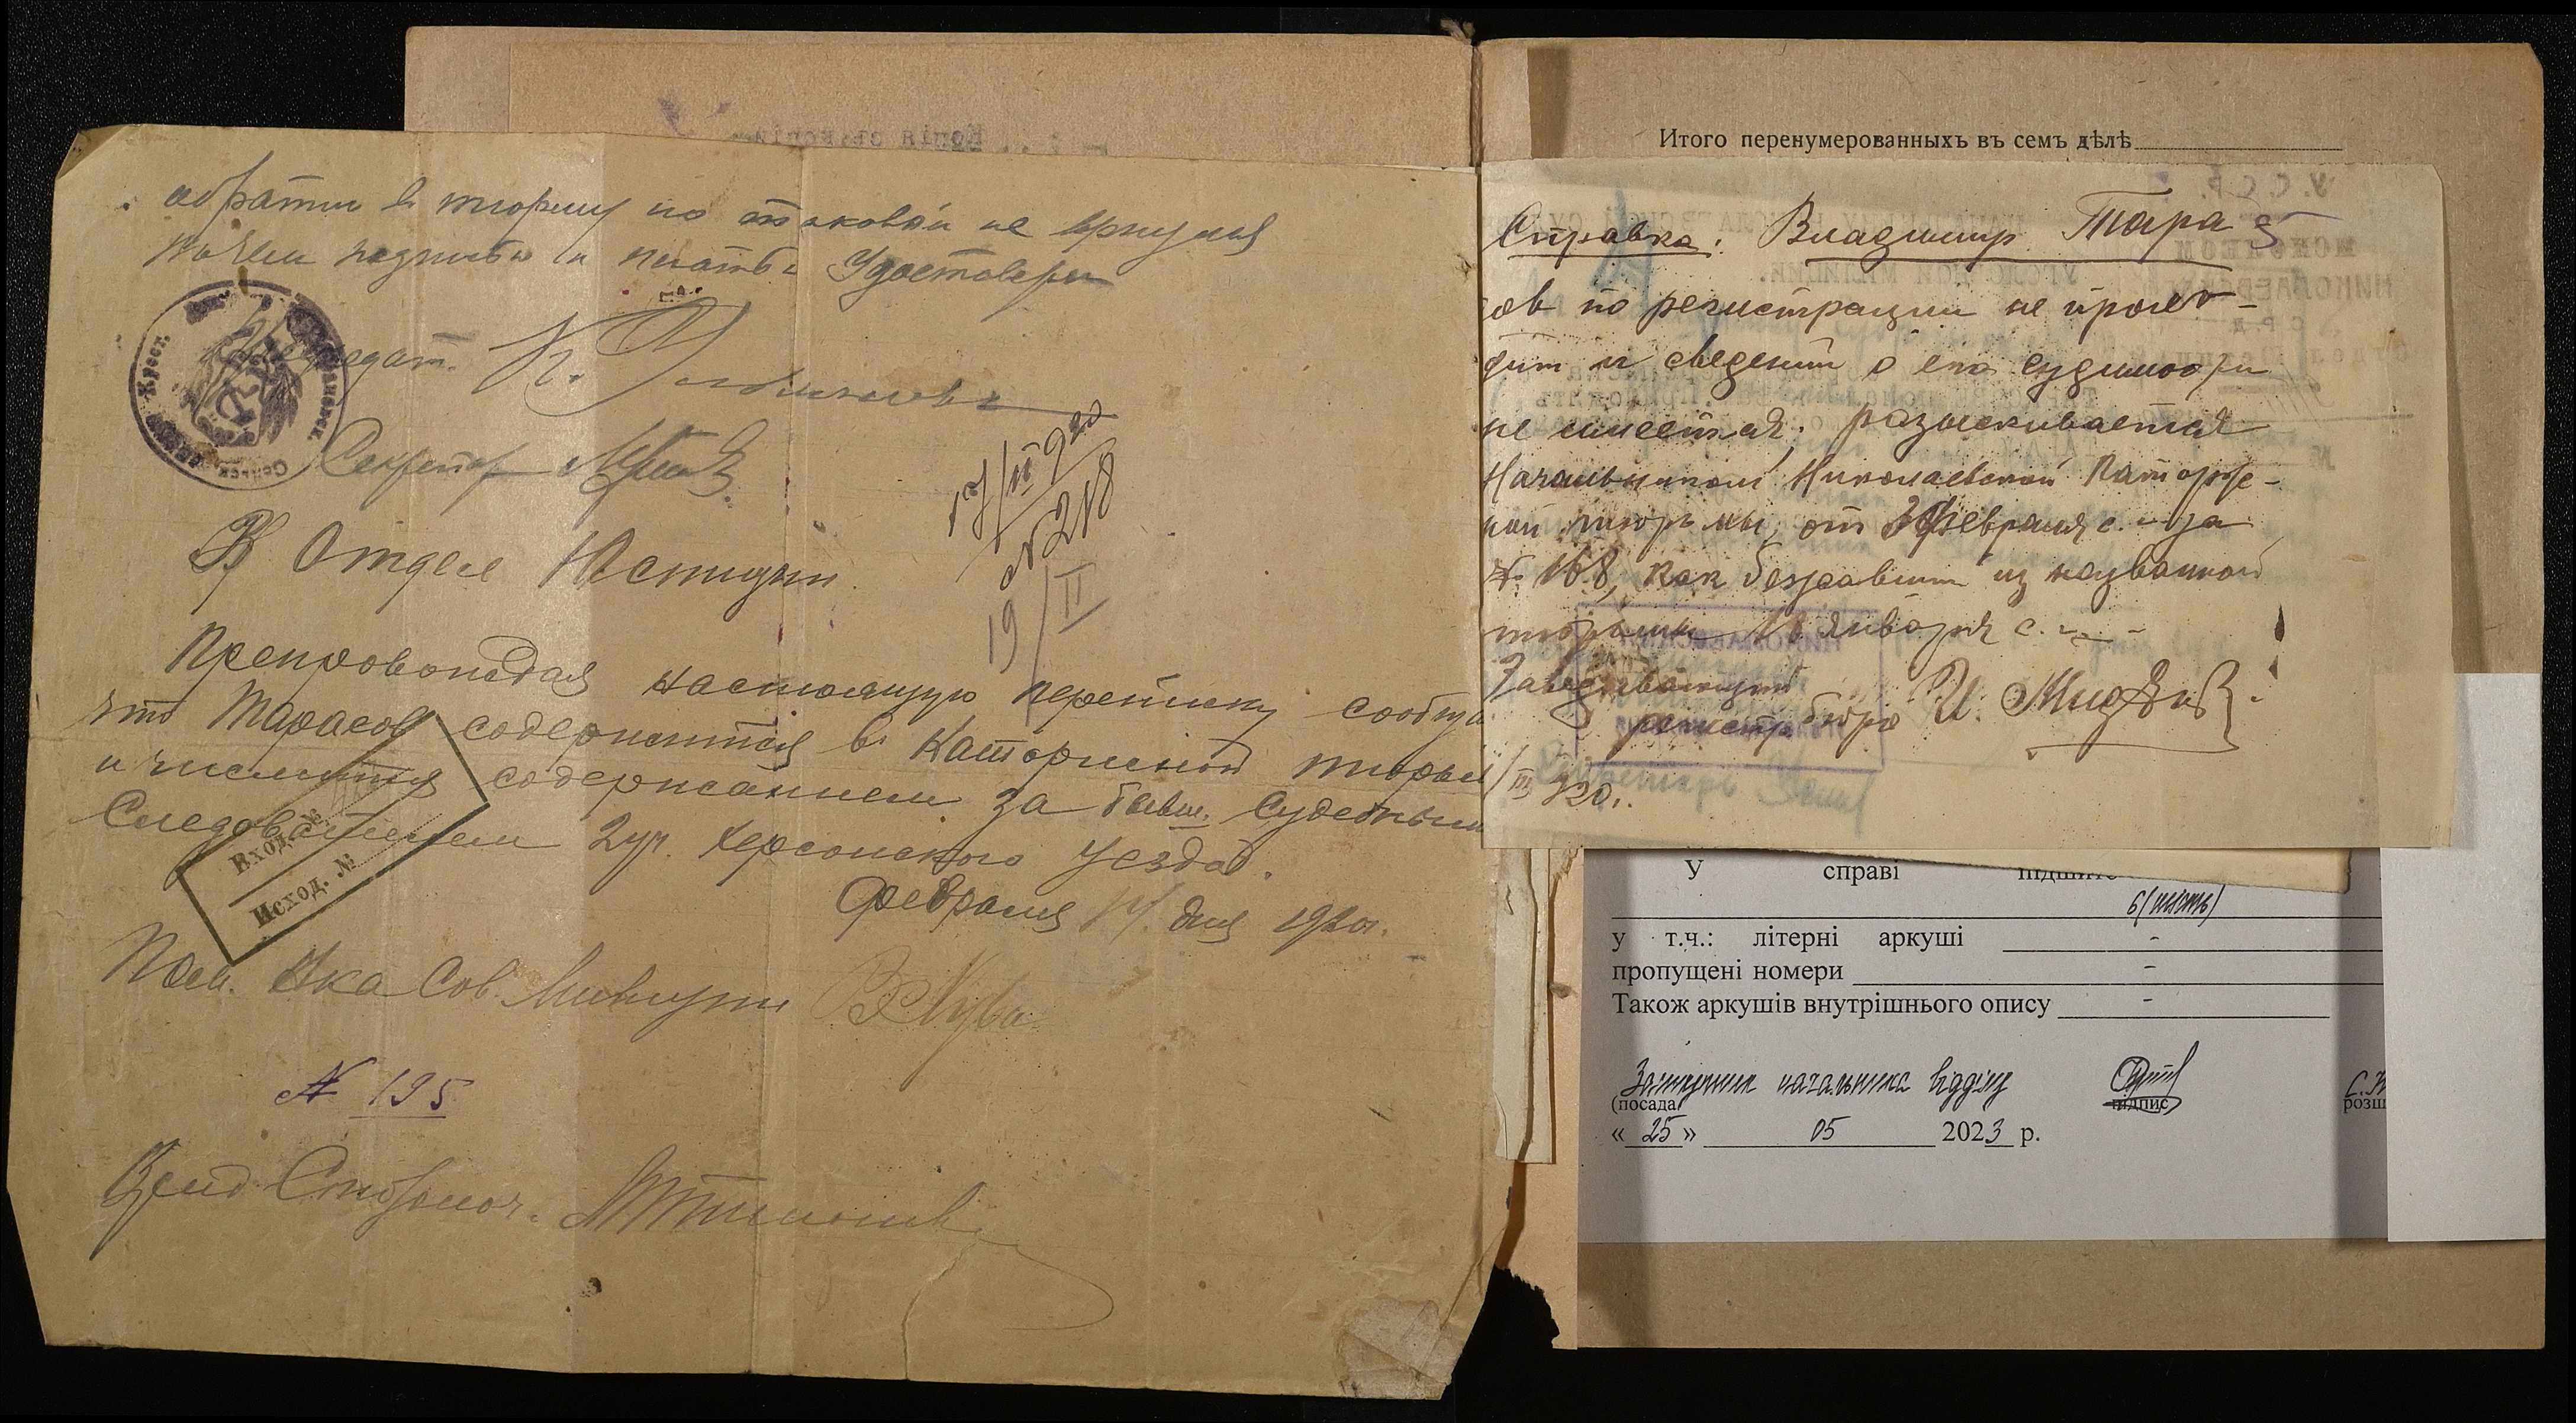 обратно в тюрьму но таковой не вернулся
в чем подписью и печатью Удостоверяю
Председат.
Секретар
В Отдел Юстиции
17/II 920
№ 218
19/II
Препровождая настоящую переписку сообща
что Тарасов содержится в каторжной тюрьме
и числится содержанием за бывш. Судебным
Следователем 2 уч. Херсонского уезда.
Февраля 14 дня 1920 г.
Вход. №
Исход. №
Пом. Нка Сов. Милиции
№ 195
Итого перенумерованныхъ въ семъ дѣлѣ
Справка: Владимир Тара 5
сов по регистрации не прохо-
дит и сведений о его судимости
не имеется. разыскивается
Начальником Николаевской Каторж-
ной тюрьмы, от февраля с.г. за
№ 168, как бежавший из названной
тюрьмы 18 января с.г.
Заведывающий
регистр бюро
/III 920 г.
У справі
6 (шість)
у т.ч.: літерні аркуші -
пропущені номери -
Також аркушів внутрішнього опису -
Заступник начальника відділу
(посада) підпис розш
« 25 » 05 2023 р.